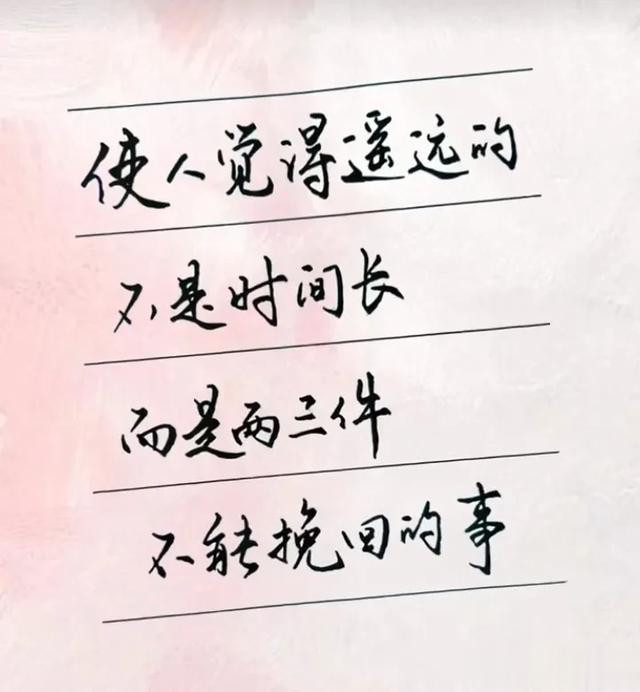 使人觉得遥远的
不是时间长
而是两三件
不能挽回的事